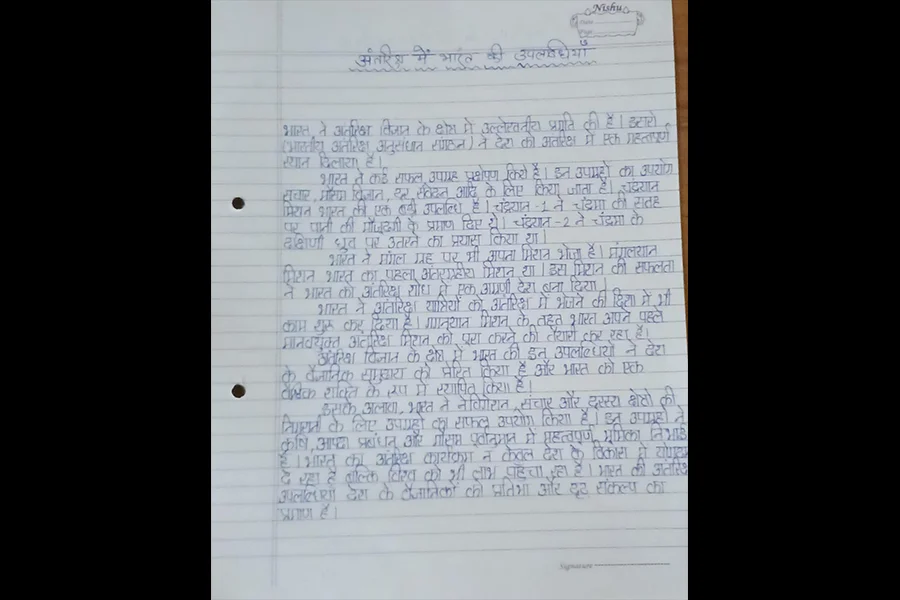 Nishu
Date
Page
अंतरिक्ष में भारत की उपलब्धियाँ
भारत ने अंतरिक्ष विज्ञान के क्षेत्र में उल्लेखनीय प्रगति की है। इसरो
(भारतीय अंतरिक्ष अनुसंधान संगठन) ने देश को अंतरिक्ष में एक महत्वपूर्ण
स्थान दिलाया है।
भारत ने कई सफल उपग्रह प्रक्षेपण किये है। इन उपग्रहों का उपयोग
संचार, मौसम विज्ञान, दूर संवेदन आदि के लिए किया जाता है। चंद्रयान
मिशन भारत की एक बड़ी उपलब्धि है। चंद्रयान-1 ने चंद्रमा की सतह
पर पानी की मौजूदगी के प्रमाण दिए थे। चंद्रयान-2 ने चंद्रमा के
दक्षिणी ध्रुव पर उतरने का प्रयास किया था।
भारत ने मंगल ग्रह पर भी अपना मिशन भेजा है। मंगलयान
मिशन भारत का पहला अंतरग्रहीय मिशन था। इस मिशन की सफलता
ने भारत को अंतरिक्ष शोध में एक अग्रणी देश बना दिया।
भारत ने अंतरिक्ष यात्रियों को अंतरिक्ष में भेजने की दिशा में भी
काम शुरू कर दिया है। गगनयान मिशन के तहत भारत अपने पहले
मानवयुक्त अंतरिक्ष मिशन को पूरा करने की तैयारी कर रहा है।
अंतरिक्ष विज्ञान के क्षेत्र में भारत की इन उपलब्धियों ने देश
के वैज्ञानिक समुदाय को प्रेरित किया है और भारत को एक
वैश्विक शक्ति के रूप में स्थापित किया है।
इसके अलावा, भारत ने नेविगेशन, संचार और दूरस्थ क्षेत्रों की
निगरानी के लिए उपग्रहों का सफल उपयोग किया है। इन उपग्रहों ने
कृषि, आपदा प्रबंधन और मौसम पूर्वानुमान में महत्वपूर्ण भूमिका निभाई
है। भारत का अंतरिक्ष कार्यक्रम न केवल देश के विकास में योगदान
दे रहा है बल्कि विश्व को भी लाभ पहुंचा रहा है। भारत की अंतरिक्ष
उपलब्धियां देश के वैज्ञानिकों की प्रतिभा और दृढ़ संकल्प का
प्रमाण है।
Signature